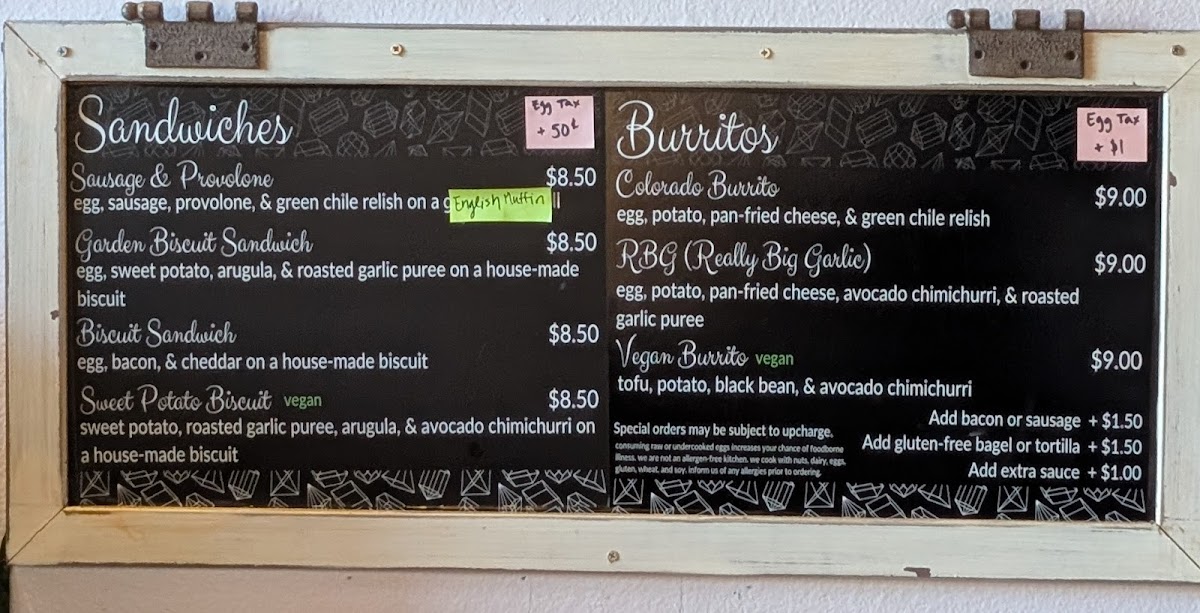 Sandwiches
Egg Tax
+ 50¢
Sausage & Provolone $8.50
egg, sausage, provolone, & green chile relish on a English Muffin
Garden Biscuit Sandwich $8.50
egg, sweet potato, arugula, & roasted garlic puree on a house-made
biscuit
Biscuit Sandwich $8.50
egg, bacon, & cheddar on a house-made biscuit
Sweet Potato Biscuit vegan $8.50
sweet potato, roasted garlic puree, arugula, & avocado chimichurri on
a house-made biscuit
Burritos
Egg Tax
+ $1
Colorado Burrito $9.00
egg, potato, pan-fried cheese, & green chile relish
RBG (Really Big Garlic) $9.00
egg, potato, pan-fried cheese, avocado chimichurri, & roasted
garlic puree
Vegan Burrito vegan $9.00
tofu, potato, black bean, & avocado chimichurri
Add bacon or sausage + $1.50
Add gluten-free bagel or tortilla + $1.50
Add extra sauce + $1.00
Special orders may be subject to upcharge.
consuming raw or undercooked eggs increases your chance of foodborne
illness. we are not an allergen-free kitchen. we cook with nuts, dairy, eggs,
gluten, wheat, and soy. inform us of any allergies prior to ordering.